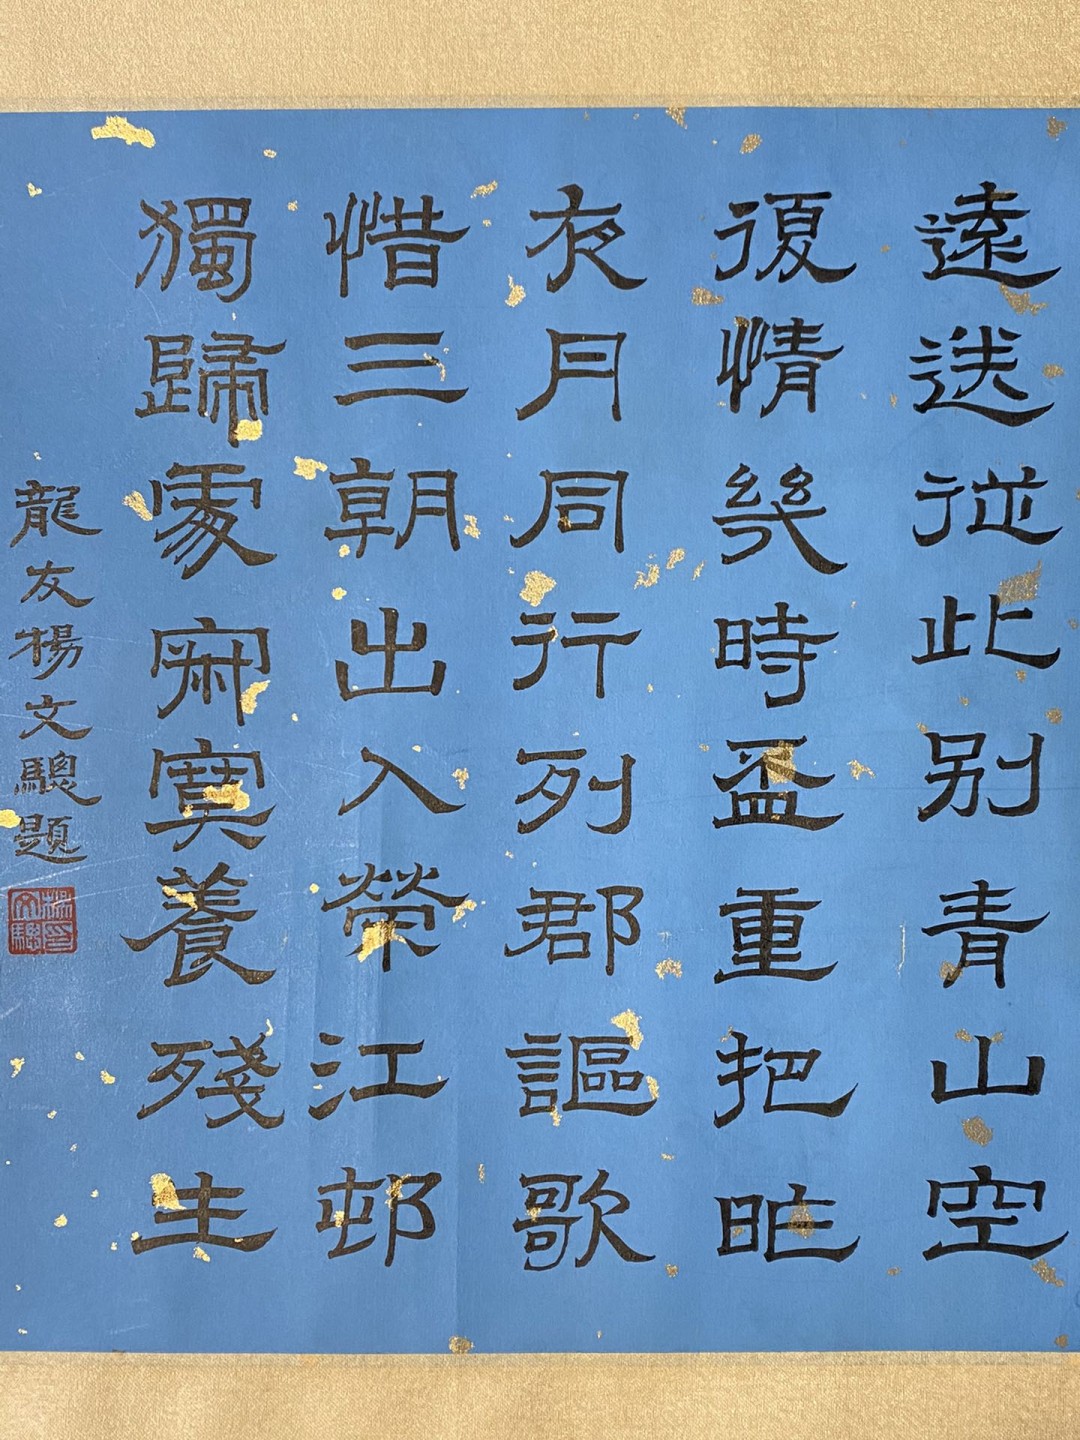 遠送從此別青山空
復情幾時盃重把昨
夜月同行列郡謳歌
惜三朝出入榮江邨
獨歸處寂寞養殘生
龍友楊文驄題
楊文驄印